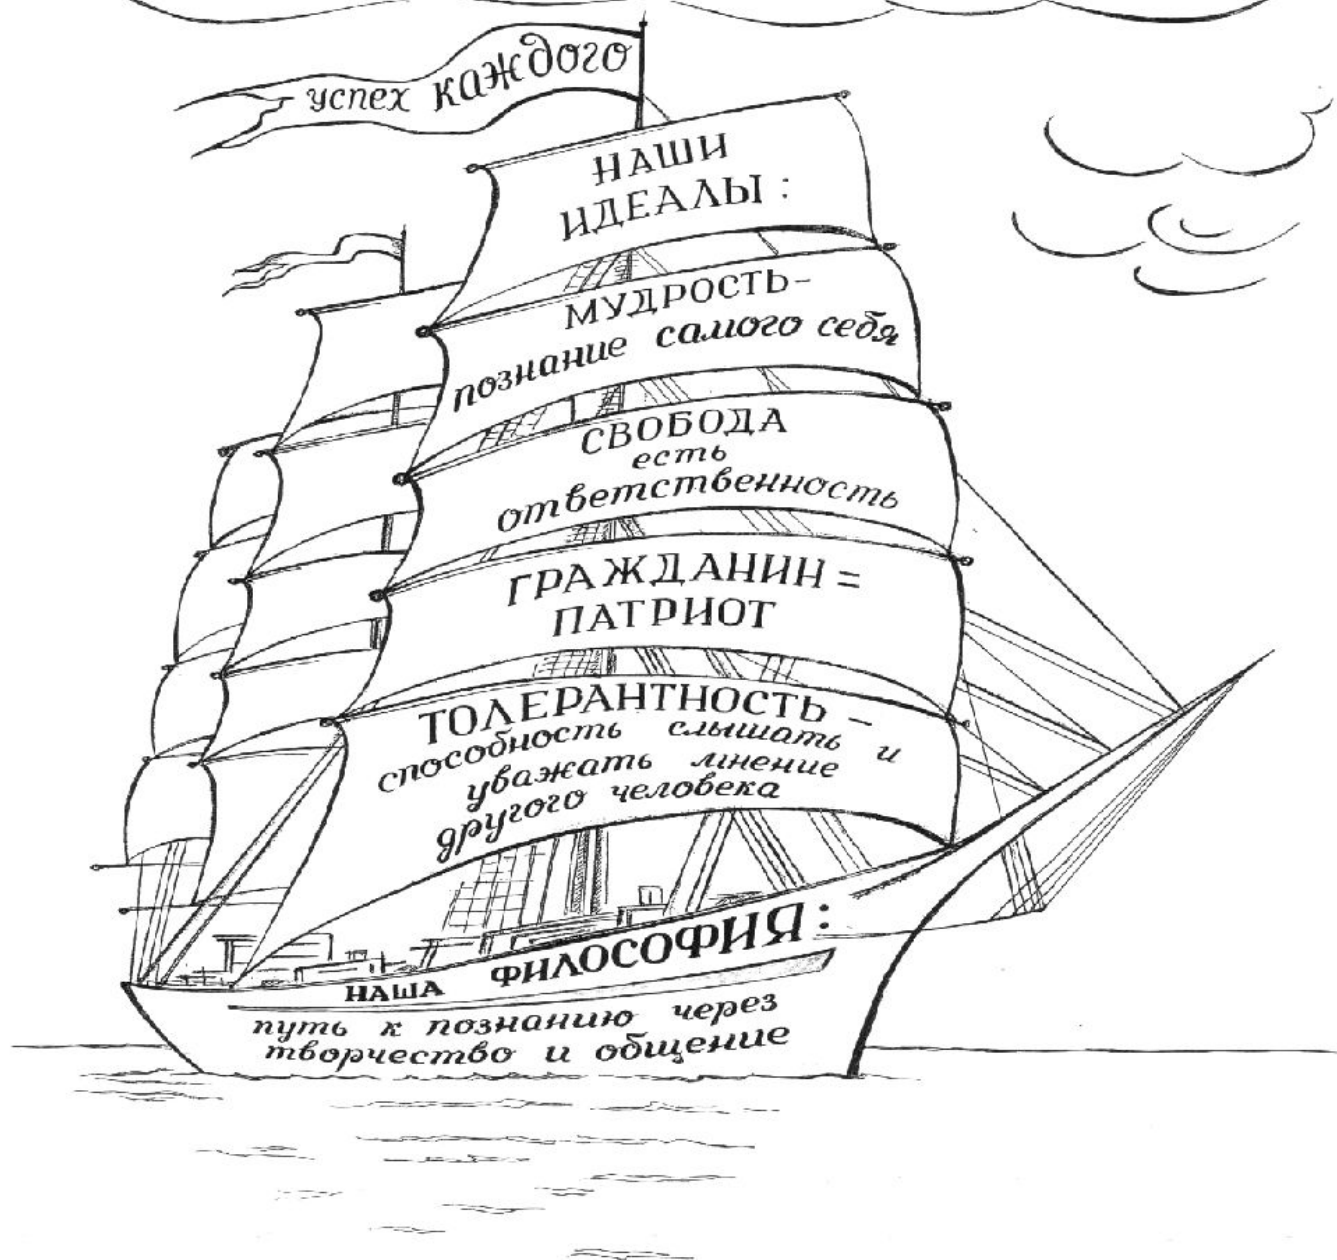 успех каждого
НАШИ
ИДЕАЛЫ:
МУДРОСТЬ-
познание самого себя
СВОБОДА
есть
ответственность
ГРАЖДАНИН =
ПАТРИОТ
ТОЛЕРАНТНОСТЬ -
способность слышать и
уважать мнение
другого человека
НАША ФИЛОСОФИЯ:
путь к познанию через
творчество и общение